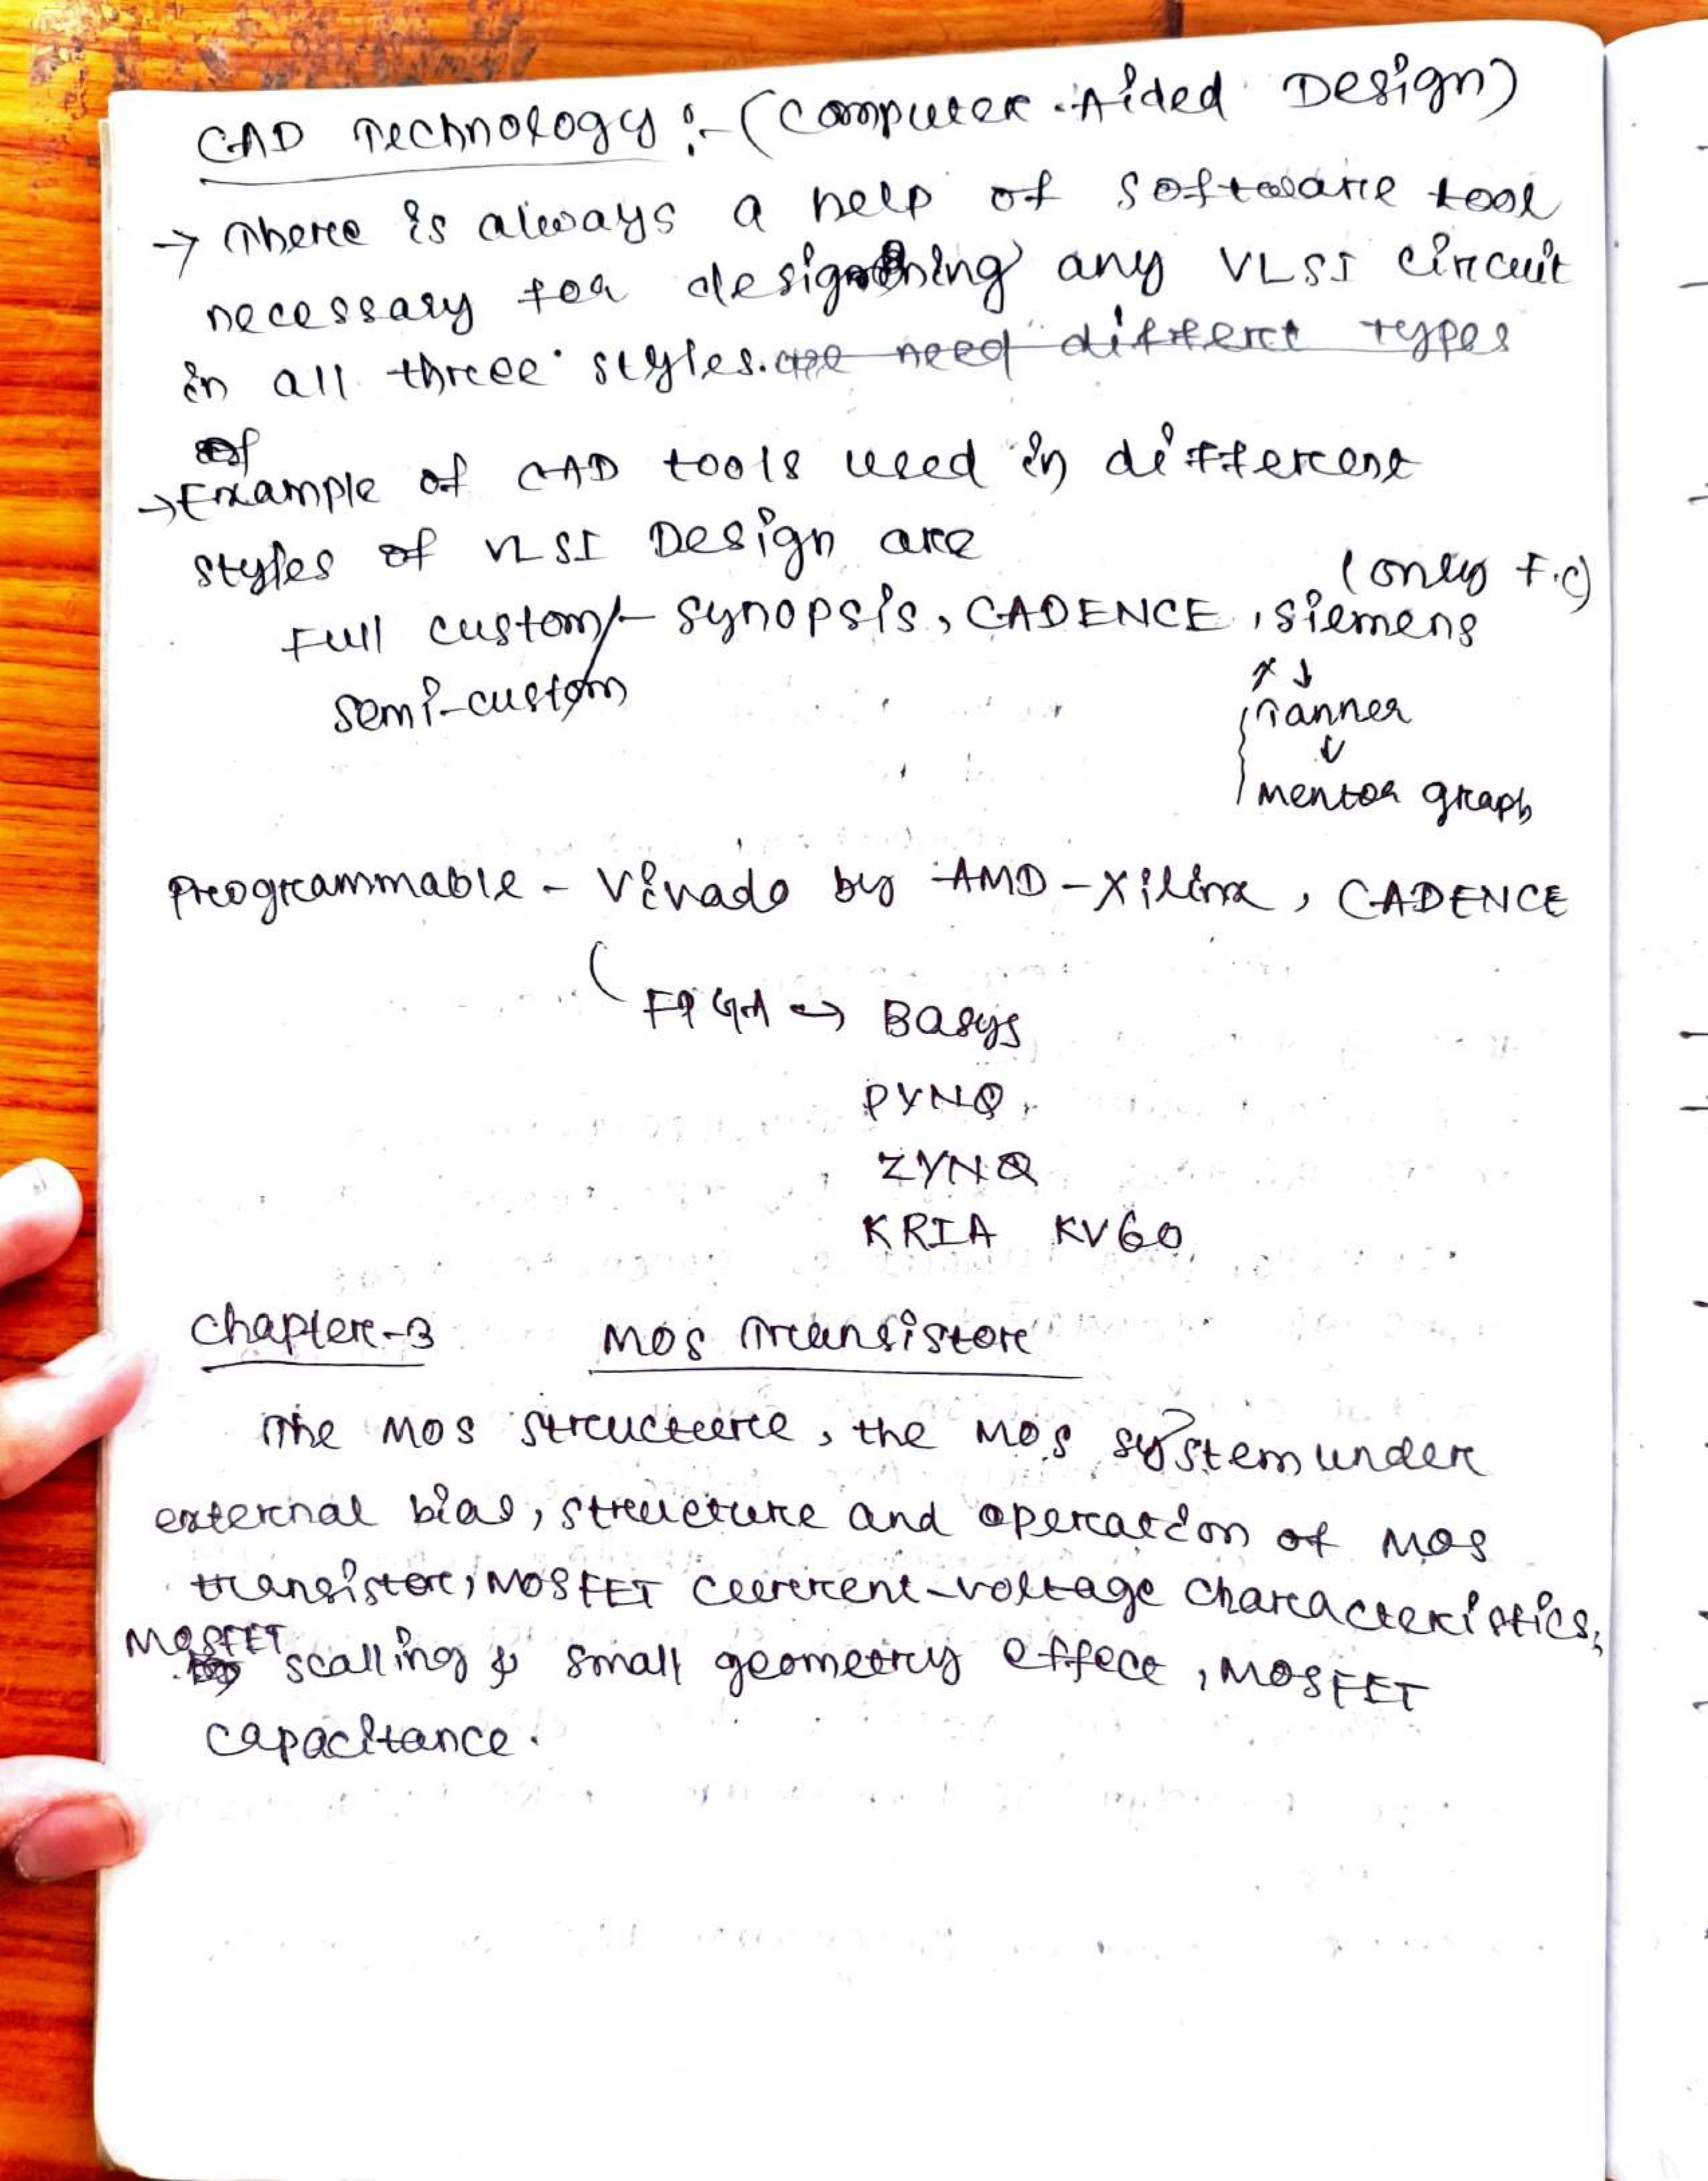 CAD Technology :- (Computer Aided Design)
→ There is always a help of software tool
necessary for designing any VLSI circuit
in all three styles. we need differet types
of
→ Example of CAD tools used in different
styles of VLSI Design are
(only F.C)
Full custom/- Synopsis, CADENCE, Siemens
Semi-custom
Tanner
↓
mentor graph
Programmable - Vivado by AMD-Xilinx, CADENCE
FPGA → Basys
PYNQ
ZYNQ
KRIA KV60
Chapter-3 MOS Transistor
The MOS structure, the MOS system under
external bias, structure and operation of MOS
transistor, MOSFET current-voltage characteristics,
MOSFET scalling & small geometry effect, MOSFET
capacitance.